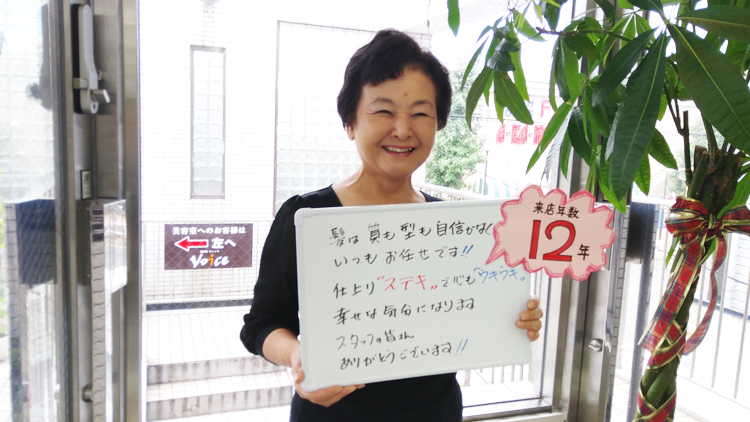 髪は質も型も自信がなく
いつもお任せです!!
仕上り"ステキ"で心も"ウキウキ"
幸せな気分になります
スタッフの皆さん
ありがとうございます!!
来店年数
12年
美容室へのお客様は
←左へ
Voice